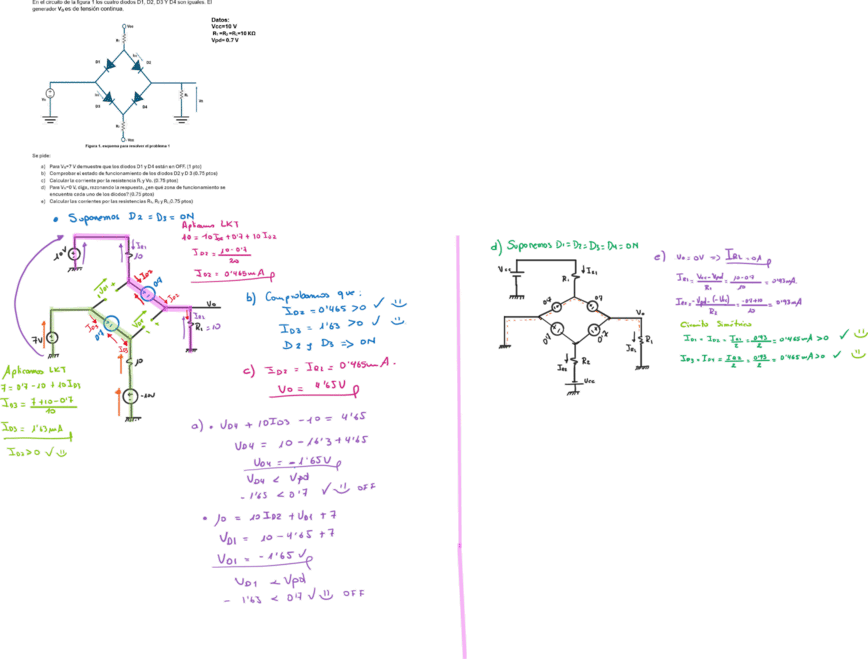 En el circuito de la figura 1 los cuatro diodos D1, D2, D3 Y D4 son iguales. El
generador V₀ es de tensión continua.
Datos:
Vcc=10 V
R₁ =R₂ =R_L=10 KΩ
Vpd= 0.7 V
Vcc
R₁
D1
D2
D3
D4
R₂
Vcc
Figura 1. esquema para resolver el problema 1
Se pide:
a) Para V₀=7 V demuestre que los diodos D1 y D4 están en OFF. (1 pto)
b) Comprobar el estado de funcionamiento de los diodos D2 y D 3 (0.75 ptos)
c) Calcular la corriente por la resistencia R_L y Vo. (0.75 ptos)
d) Para V₀=0 V, diga, razonando la respuesta, ¿en qué zona de funcionamiento se
encuentra cada uno de los diodos? (0.75 ptos)
e) Calcular las corrientes por las resistencias R₁, R₂ y R_L (0.75 ptos)
• Suponemos D2 = D3 = ON
Aplicamos LKT
10 = 10 I_D2 + 0'7 + 10 I_D2
I_D2 = (10-0'7)/20
I_D2 = 0'465 mA
10V
I_R1
10
I_D2
0'7
I_D2
V_D1
V_D4
Vo
I_RL
R_L = 10
7V
I_D3
0'7
I_D3
10
-10V
Aplicamos LKT
7 = 0'7 - 10 + 10 I_D3
I_D3 = (7+10-0'7)/10
I_D3 = 1'63 mA
I_D3 > 0 ✓
b) Comprobamos que:
I_D2 = 0'465 > 0 ✓
I_D3 = 1'63 > 0 ✓
D2 y D3 => ON
c) I_D2 = I_RL = 0'465 mA.
Vo = 4'65 V
a) • U_D4 + 10 I_D3 - 10 = 4'65
U_D4 = 10 - 16'3 + 4'65
U_D4 = -1'65 V
U_D4 < Vpd
-1'65 < 0'7 ✓ OFF
• 10 = 10 I_D2 + U_D1 + 7
U_D1 = 10 - 4'65 + 7
U_D1 = -1'65 V
U_D1 < Vpd
-1'63 < 0'7 ✓ OFF
d) Suponemos D1 = D2 = D3 = D4 = ON
Vcc
R₁
I_R1
0'7
0'7
0'7
0'7
Vo
I_RL
R_L
R₂
I_R2
Vcc
e) Vo = 0V => I_RL = 0A
I_R1 = (Vcc-Vpd)/R₁ = (10-0'7)/10 = 0'93 mA.
I_R2 = (-Vpd-(-Vcc))/R₂ = (-0'7+10)/10 = 0'93 mA
Circuito Simétrico
I_D1 = I_D2 = I_R1/2 = 0'93/2 = 0'465 mA > 0 ✓
I_D3 = I_D4 = I_R2/2 = 0'93/2 = 0'465 mA > 0 ✓